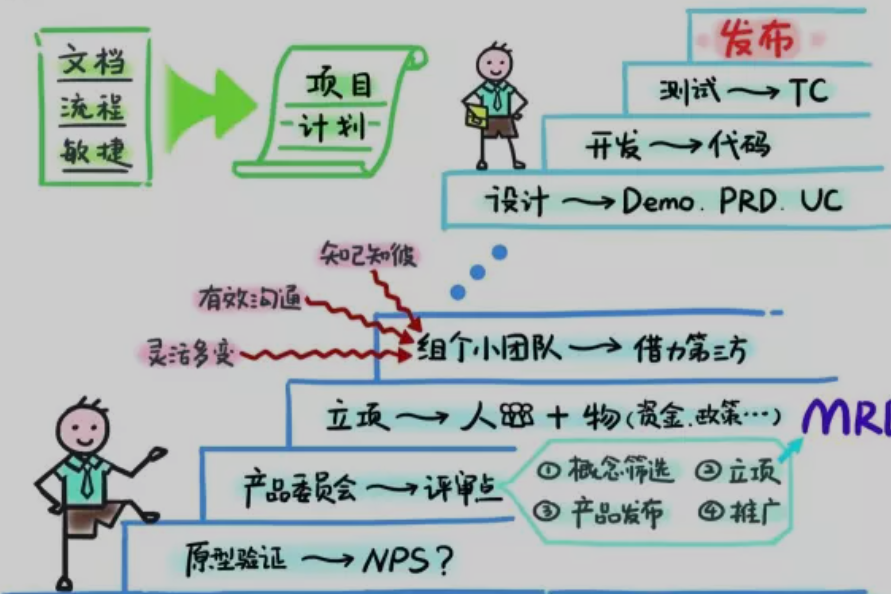 文档
流程
敏捷
项目
计划
发布
测试→TC
开发→代码
设计→Demo. PRD. UC
知己知彼
有效沟通
灵活多变
组个小团队→借力第三方
立项→人+物(资金、政策…)
MRD
产品委员会→评审点
①概念筛选 ②立项
③产品发布 ④推广
原型验证→NPS?